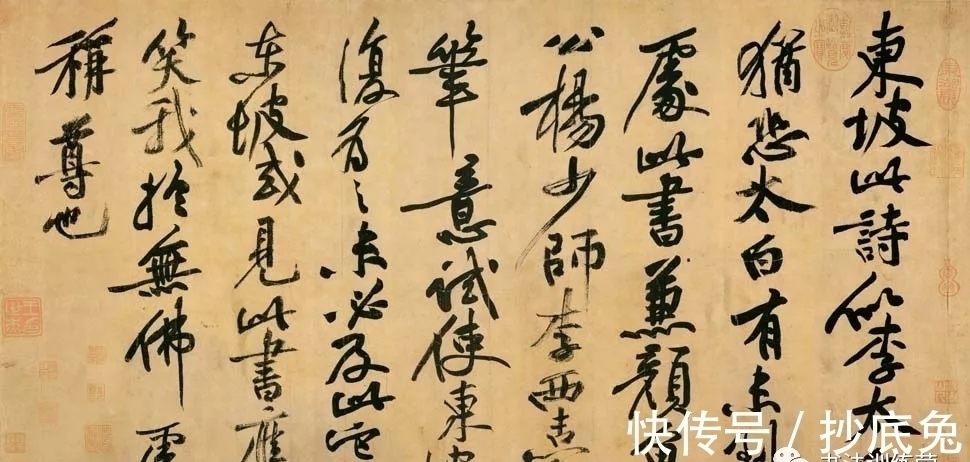 東坡此詩似李太
猶恐太白有未到
處此書兼顏
公楊少師李西臺
筆意試使東坡
復為之未必及此它
東坡或見此書應
笑我於無佛處
稱尊也
快传号 / 抄底兔
书法训练营